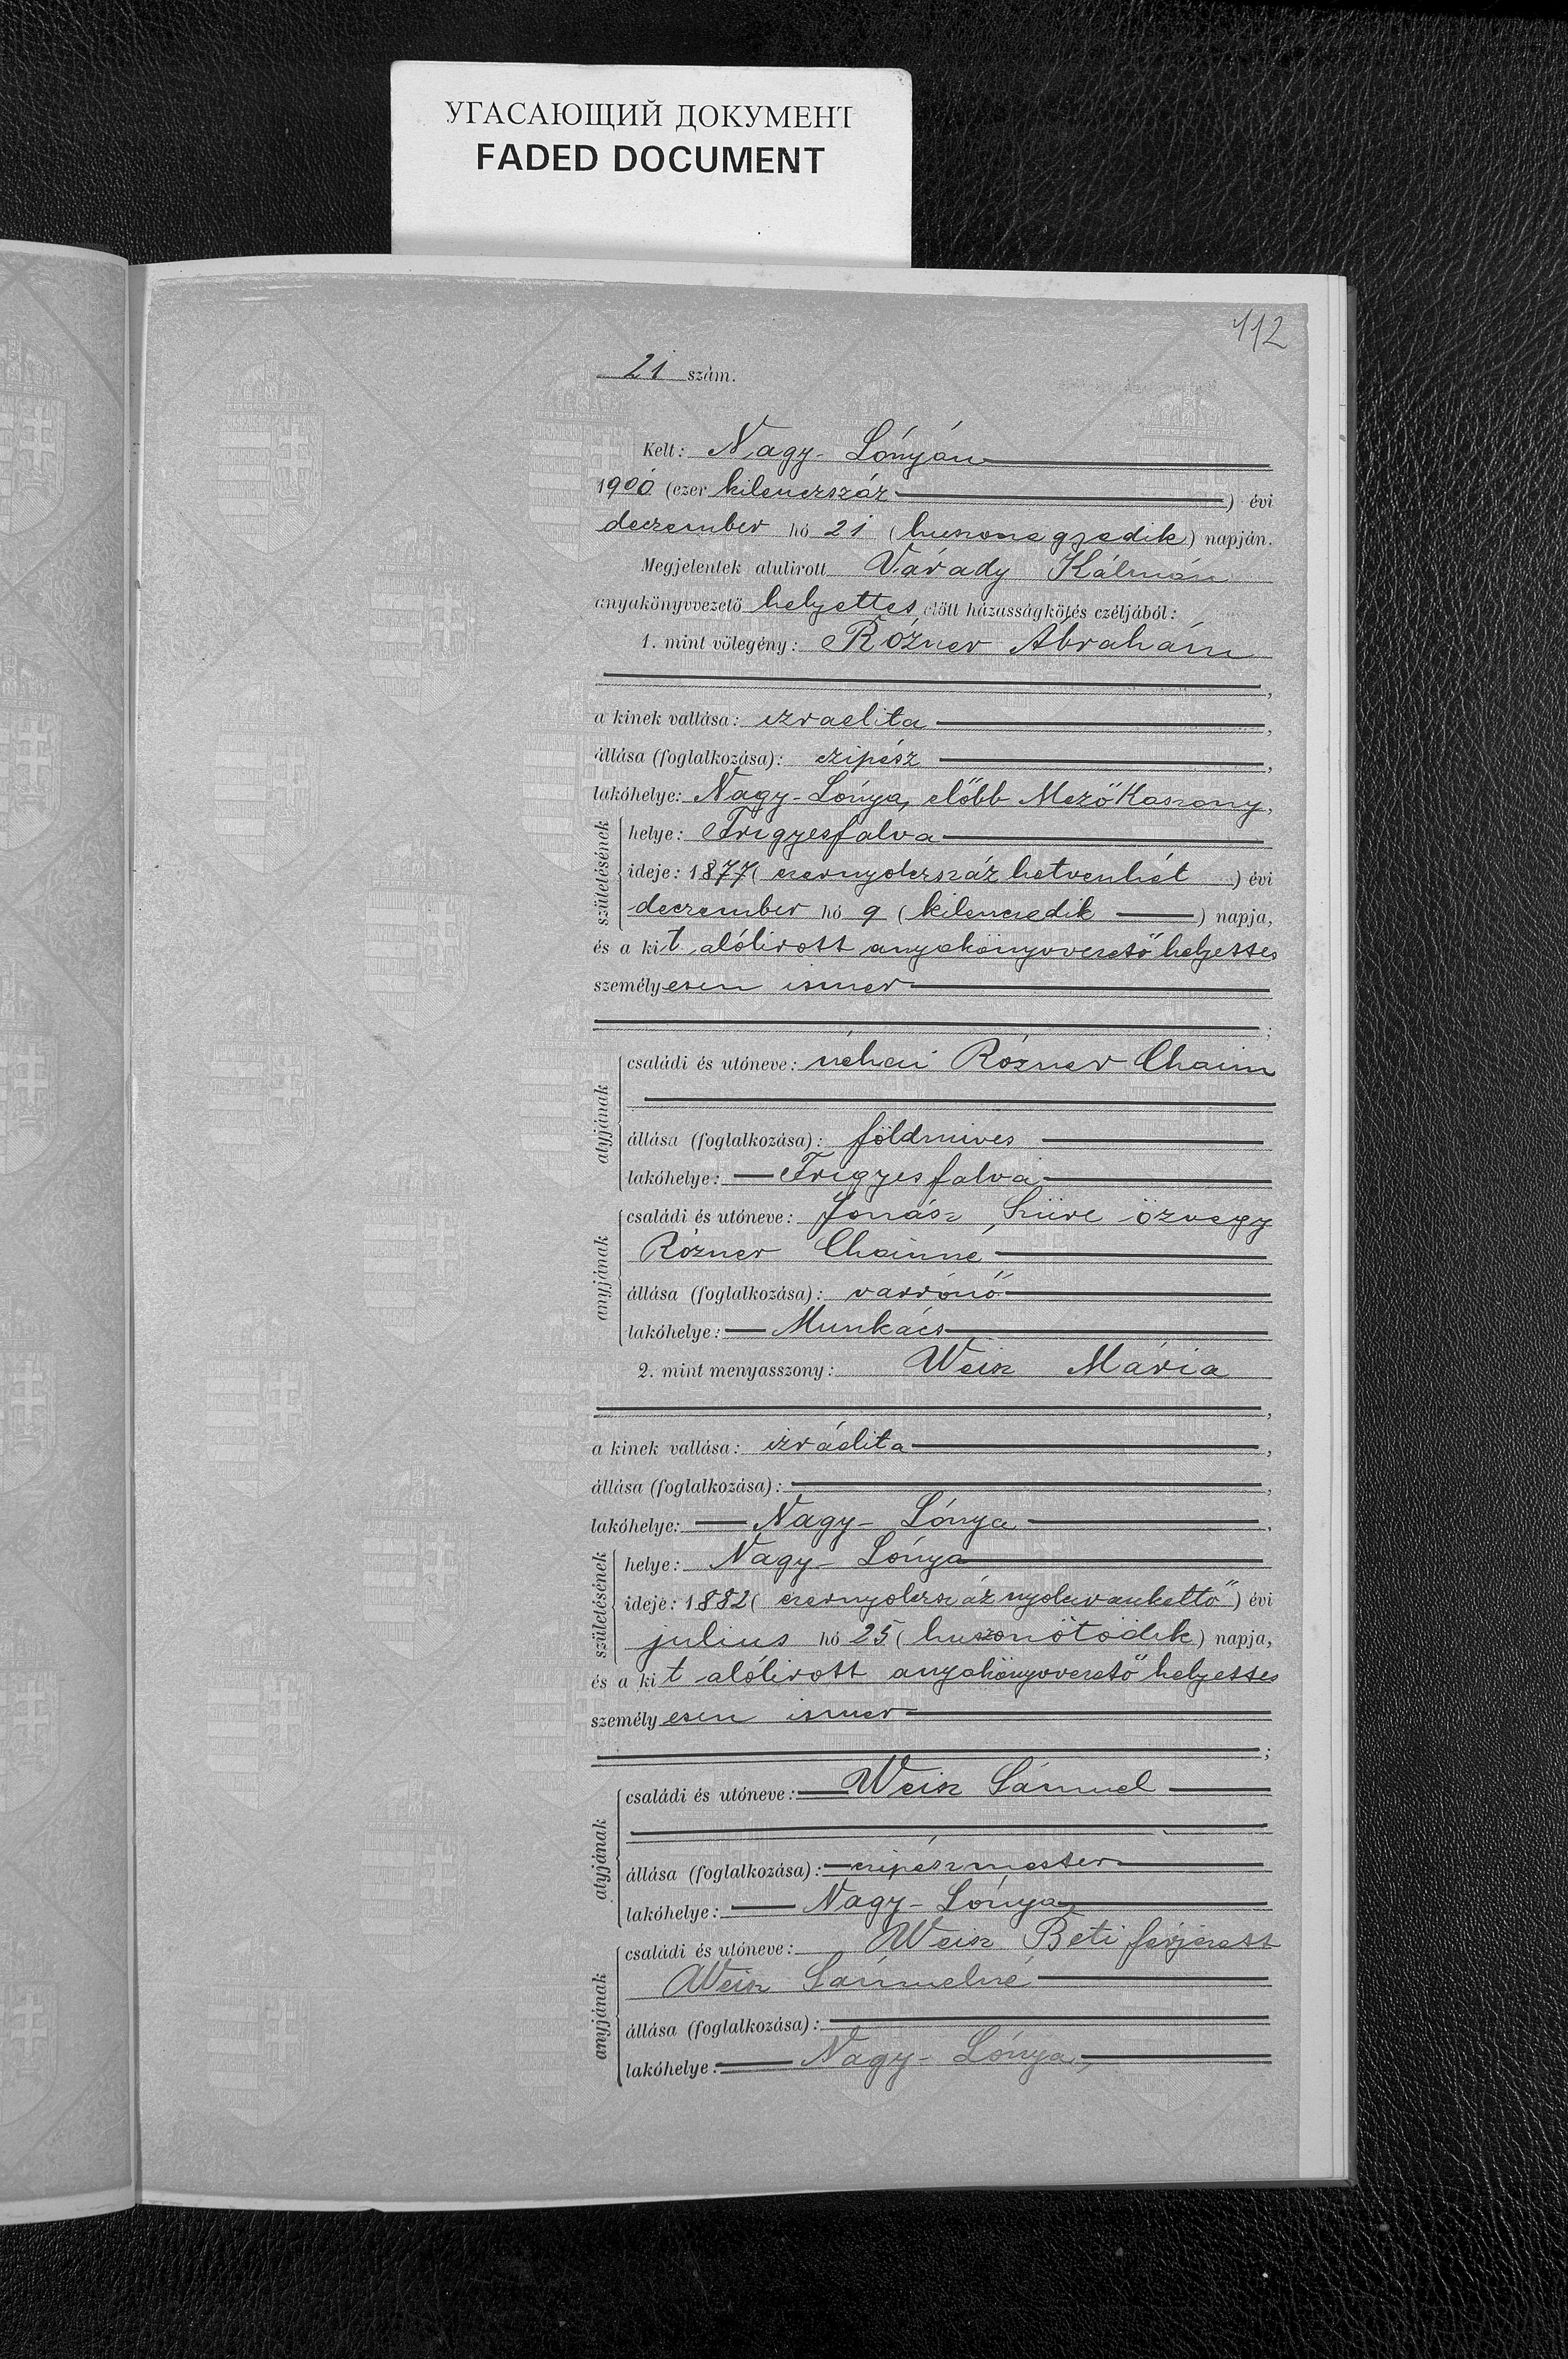 УГАСАЮЩИЙ ДОКУМЕНТ
FADED DOCUMENT
112
21 szám.
Kelt: Nagy-Lónyán
1900 (ezer kilenczszáz) évi
deczember hó 21 (huszonegyedik) napján.
Megjelentek alulirott Várady Kálmán
anyakönyvvezető helyettes előtt házasságkötés czéljából:
1. mint vőlegény: Rózner Ábrahám
a kinek vallása: izraelita,
állása (foglalkozása): czipész,
lakóhelye: Nagy-Lónya, előbb Mező Kaszony,
születésének
helye: Frigyesfalva
ideje: 1877 (ezernyolczszáz hetvenhét) évi
deczember hó 9 (kilenczedik) napja,
és a kit alólirott anyakönyvvezető helyettes
személyesen ismer
;
atyjának
családi és utóneve: néhai Rózner Chaim
állása (foglalkozása): földmives
lakóhelye: Frigyesfalva
anyjának
családi és utóneve: Jónász Szüre özvegy
Rózner Chaimné
állása (foglalkozása): varrónő
lakóhelye: Munkács
2. mint menyasszony: Weisz Mária
a kinek vallása: izráelita,
állása (foglalkozása):,
lakóhelye: Nagy-Lónya,
születésének
helye: Nagy-Lónya
ideje: 1882 (ezernyolczszáz nyolczvankettő) évi
julius hó 25 (huszonötödik) napja,
és a kit alólirott anyakönyvvezető helyettes
személyesen ismer
;
atyjának
családi és utóneve: Weisz Sámuel
állása (foglalkozása): czipészmester
lakóhelye: Nagy-Lónya
anyjának
családi és utóneve: Weisz Beti férjezett
Weisz Sámuelné
állása (foglalkozása):
lakóhelye: Nagy-Lónya,